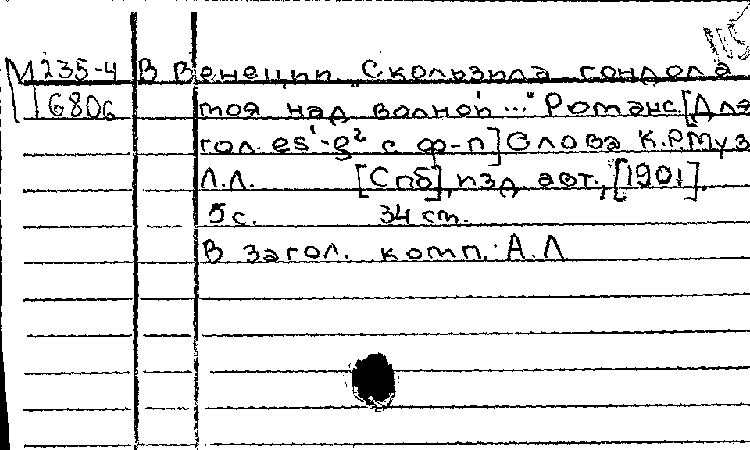 М 235-4 В Венеции „Скользила гондола
16806 моя над волной..." Романс [Для
гол. es¹-g² с ф-п] Слова К.Р. Муз
Л.Л. [Спб], изд. авт., [1901].
5 с. 34 см.
В загол. комп.: А.Л